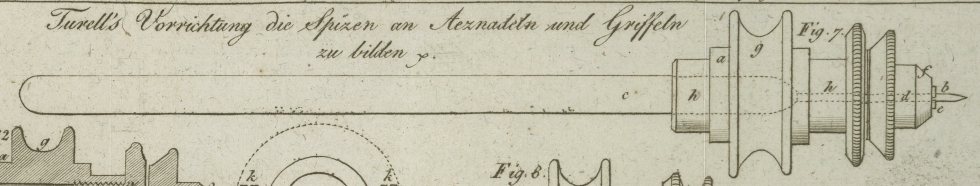 Turell's Vorrichtung die Spizen an Aeznadeln und Griffeln
zu bilden
Fig. 7.
a g f
c h h d b
e
g
a
k k
Fig. 8.